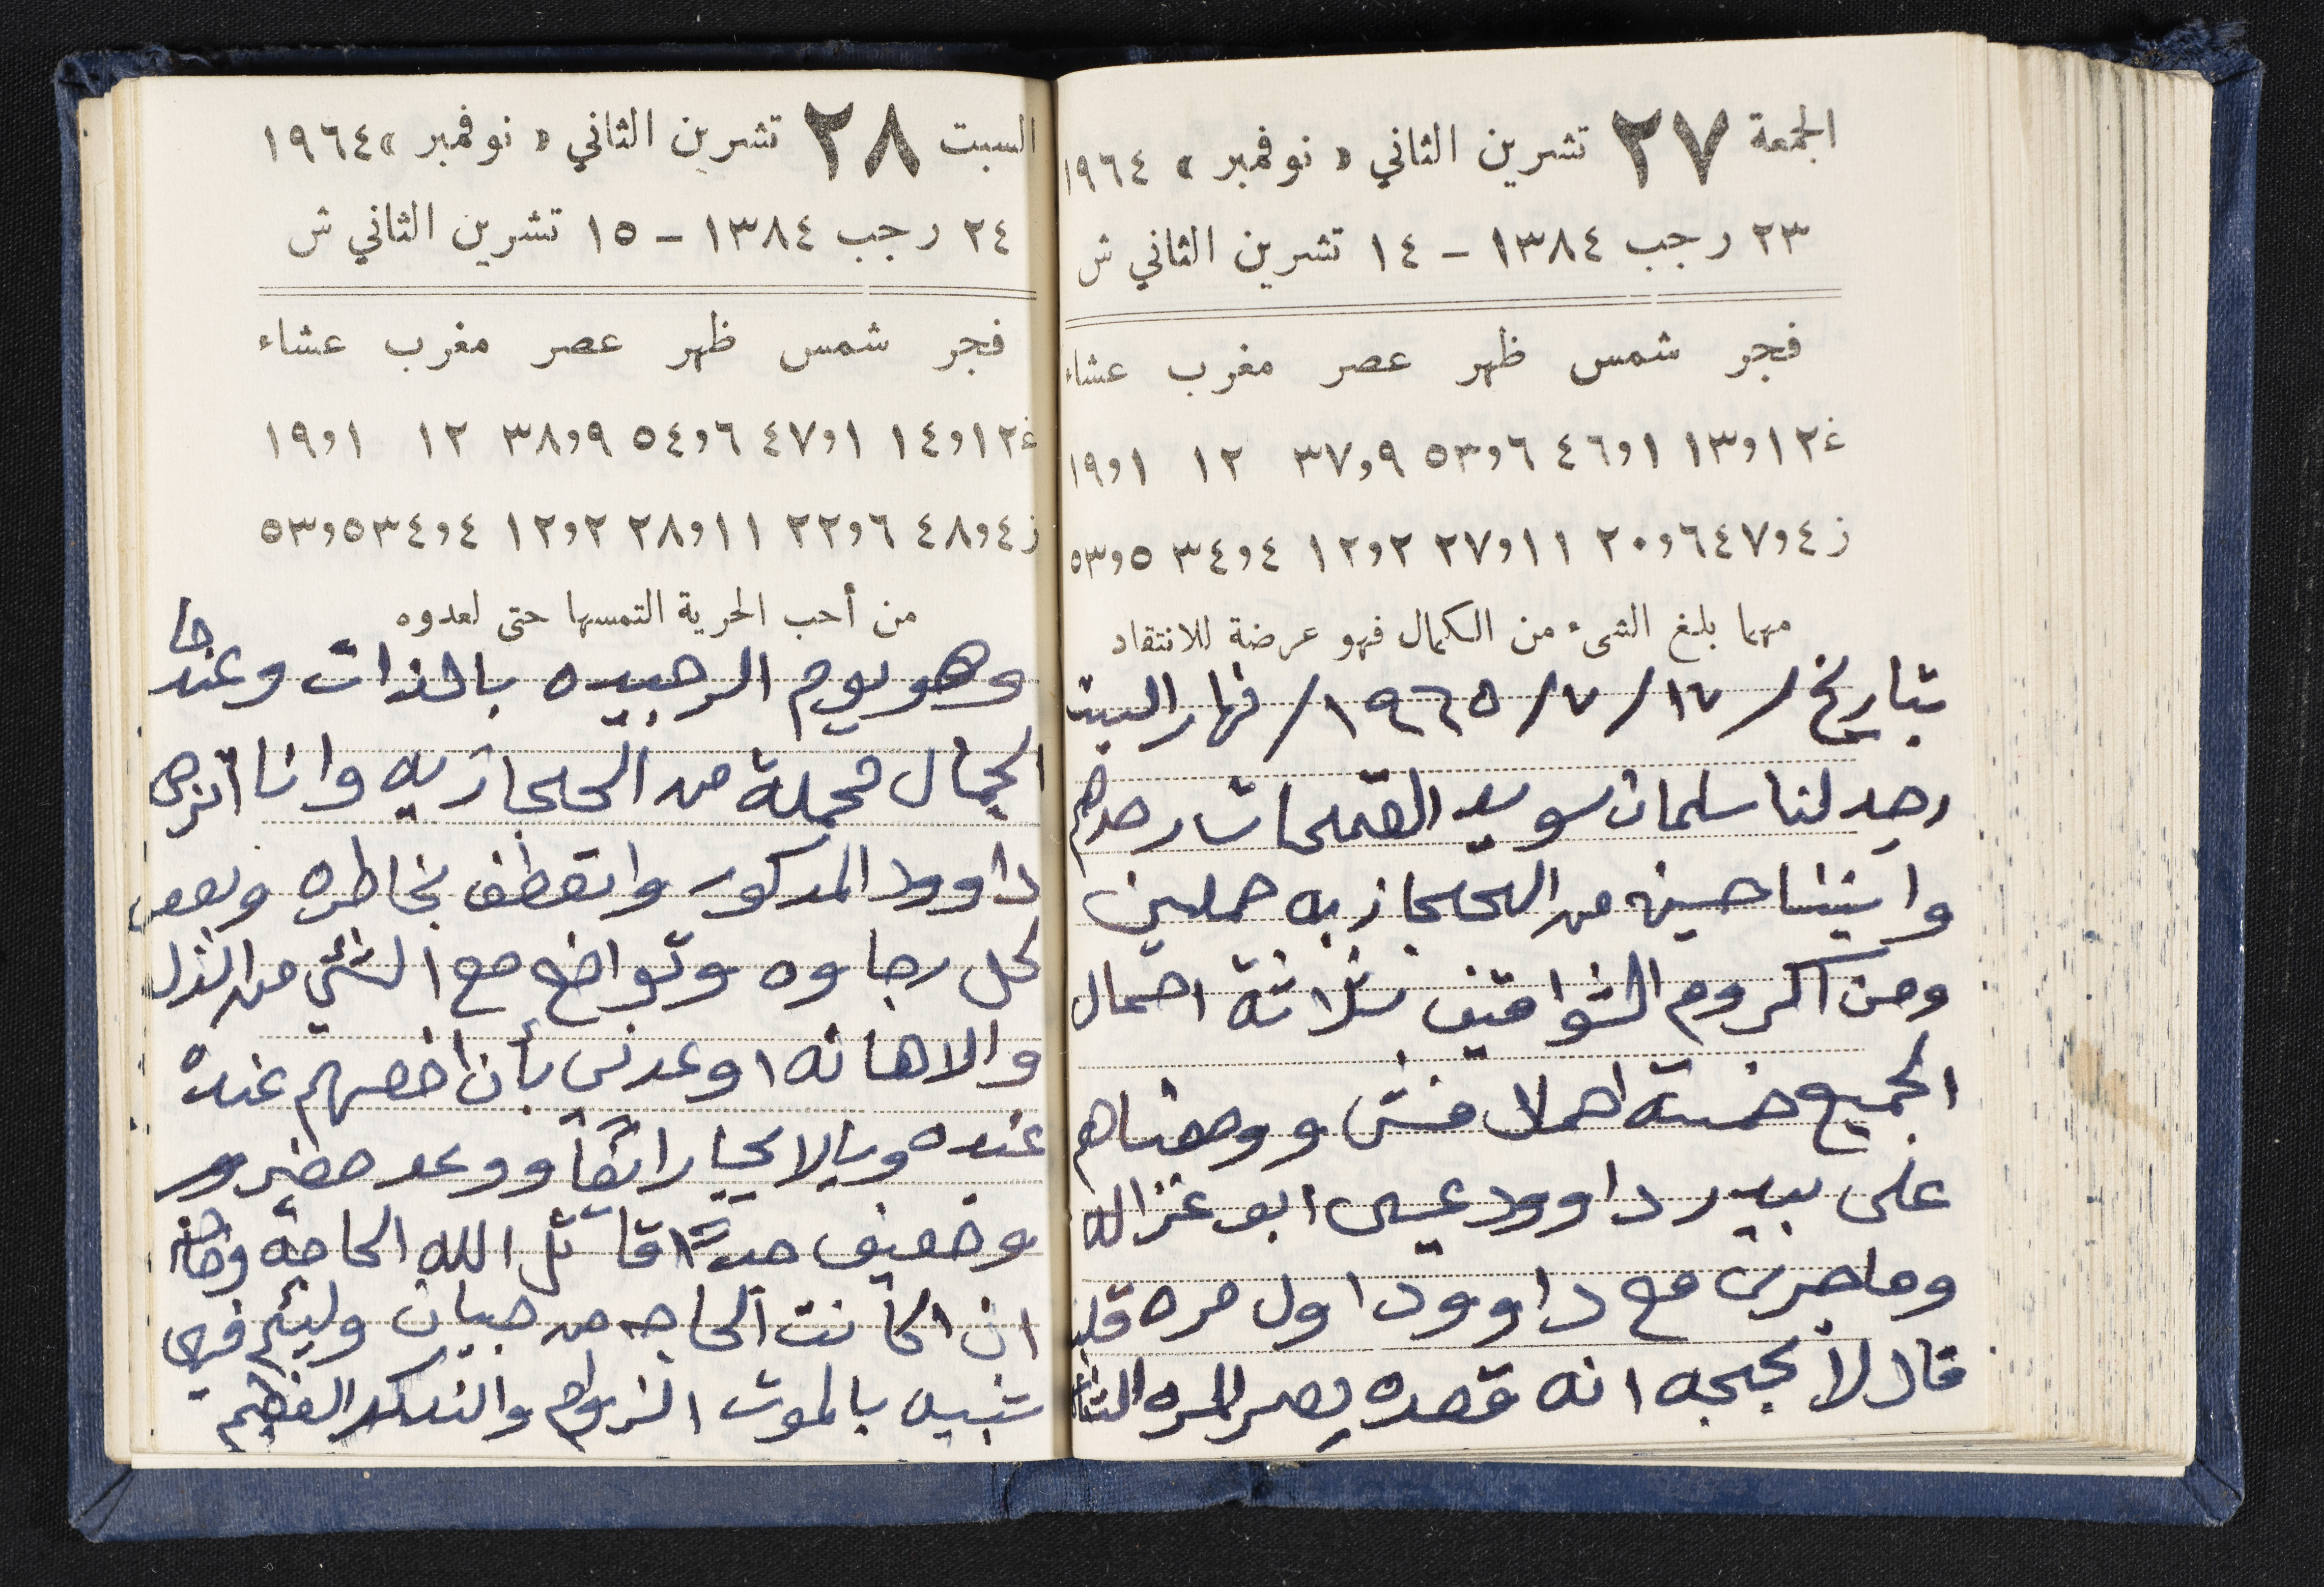 الجمعة ٢٧ تشرين الثاني « نوفمبر » ١٩٦٤
٢٣ رجب ١٣٨٤ - ١٤ تشرين الثاني ش
فجر شمس ظهر عصر مغرب عشاء
غ ١٢و١٣ ١و٤٦ ٦و٥٣ ٩و٣٧ ١٢ ١و١٩
ز ٤و٤٧ ٦و٢٠ ١١و٢٧ ٢و١٢ ٤و٣٤ ٥و٥٣
مهما بلغ الشيء من الكمال فهو عرضة للانتقاد
بتاريخ / ١٧ / ٧ / ١٩٦٥ / نهار السبت
رجد لنا سلمان سويد القمحات رجدهم
واثيننا حسينه من الحجازيه حملين
ومن اكروم الشواقيف ثلاثة احمال
الجميع خمسة احملا قش ووضعناهم
على بيدر داوود عيسى ابو غزاله
وماجرى مع داوود اول مره
قال لأ بحجه انه قصده يصر المره
السبت ٢٨ تشرين الثاني « نوفمبر » ١٩٦٤
٢٤ رجب ١٣٨٤ - ١٥ تشرين الثاني ش
فجر شمس ظهر عصر مغرب عشاء
غ ١٢و١٤ ١و٤٧ ٦و٥٤ ٩و٣٨ ١٢ ١و١٩
ز ٤و٤٨ ٦و٢٢ ١١و٢٨ ٢و١٢ ٤و٣٤ ٥و٥٣
من أحب الحرية التمسها حتى لعدوه
وهو يوم الرجيده بالذات وعندما
الجمال محملة من الحجازيه وانا اترجى
داوود المذكور واتعطف بخاطره وبعد
كل رجاوه وتواضع مع الشي من الذل
والاهانه اوعدني بأن احطهم عنده
عنده وبالايجار ايضاً ووعد
وضعيف جداً قاتل الله الحاجه وخاصة
ان اكانت الحاجه من جبان ولئيم فهي
شبيه بالموت الزوام والنكد العظيم